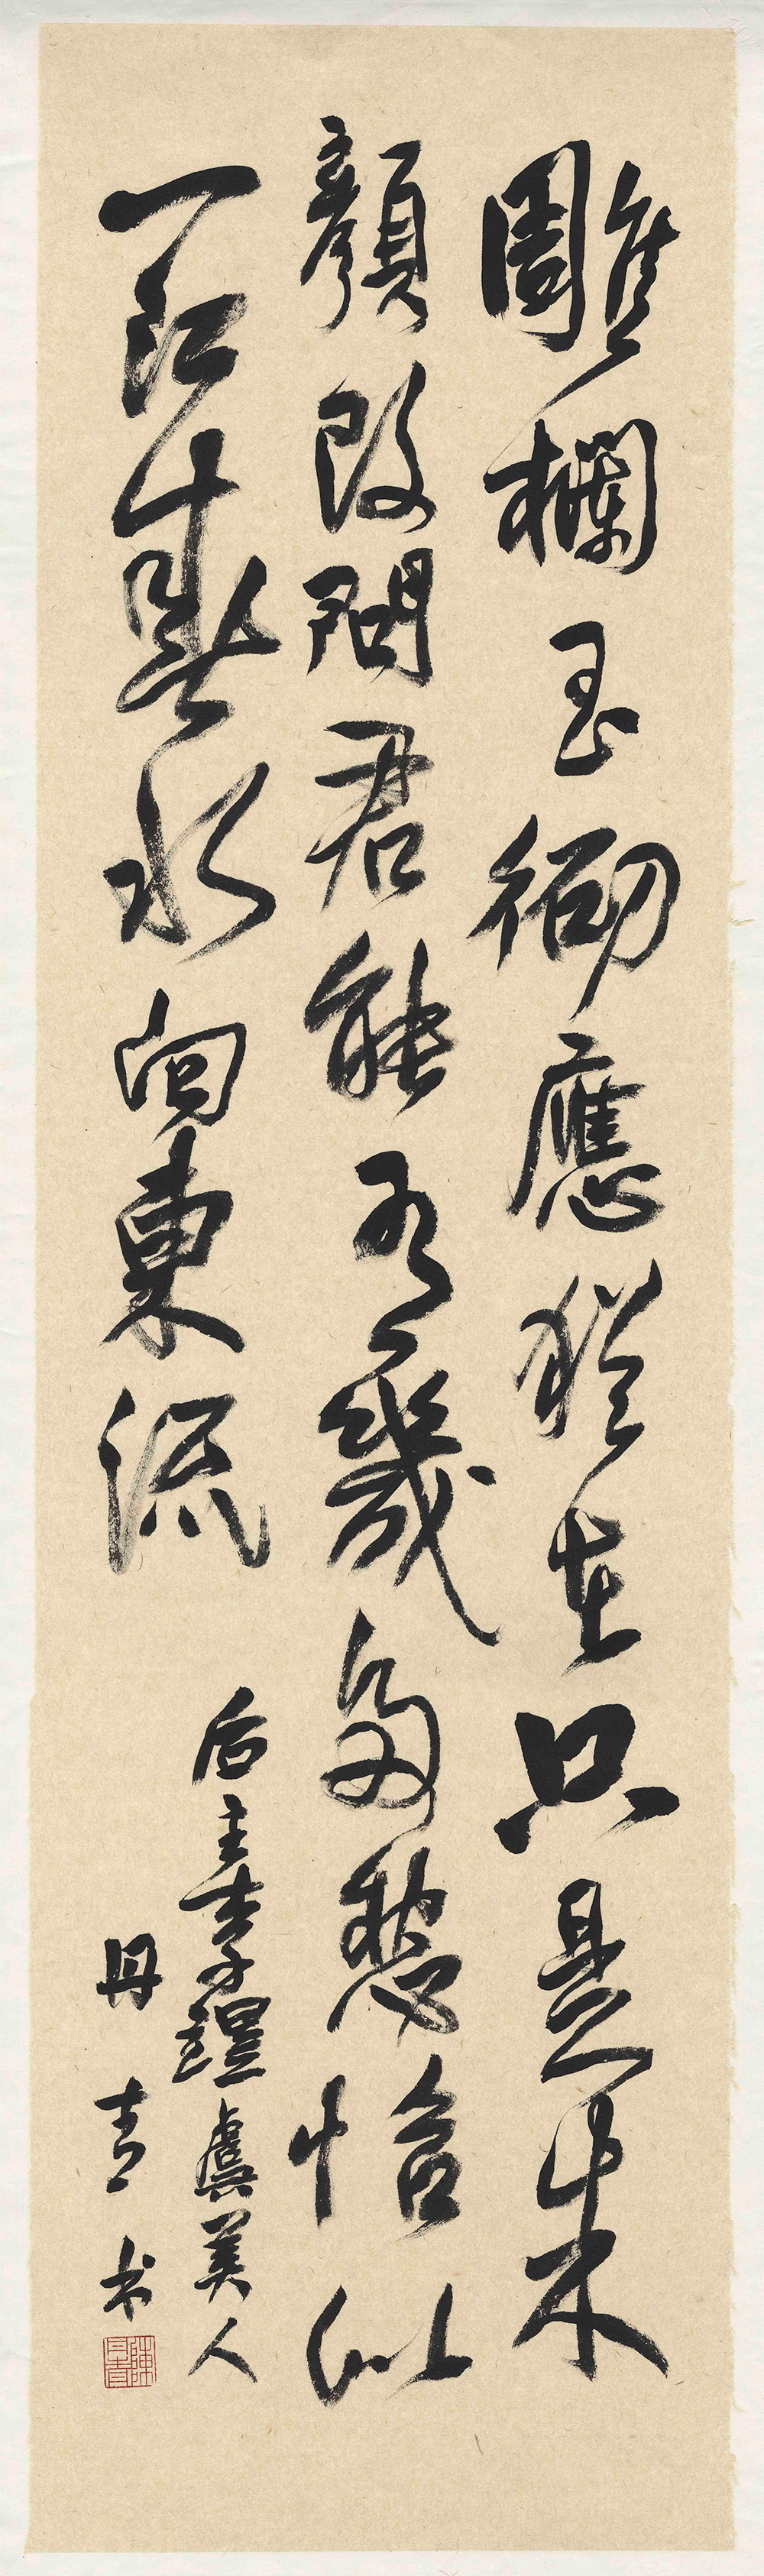 雕欄玉砌應猶在只是朱
顏改問君能有幾多愁恰似
一江春水向東流
后主李煜虞美人
丹青书
陳丹青